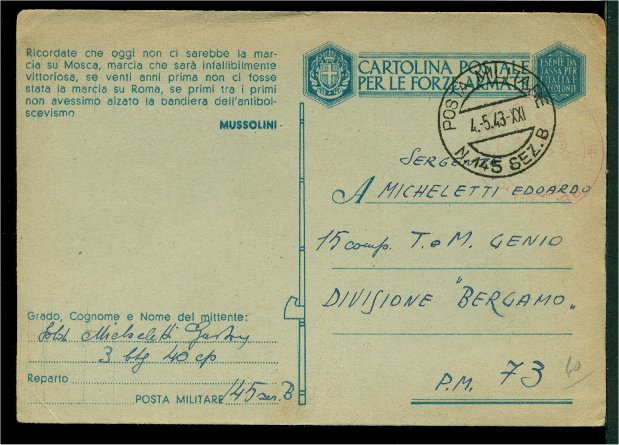 Ricordate che oggi non ci sarebbe la mar-
cia su Mosca, marcia che sarà infallibilmente
vittoriosa, se venti anni prima non ci fosse
stata la marcia su Roma, se primi tra i primi
non avessimo alzato la bandiera dell'antibol-
scevismo
MUSSOLINI
CARTOLINA POSTALE
PER LE FORZE ARMATE
ESENTE DA
TASSA PER
L'ITALIA E
COLONIE
POSTA MILITARE
4.-5.43-XXI
N.145 SEZ.B
SERGENTE
A MICHELETTI EDOARDO
15 comp. T.e M. GENIO
DIVISIONE "BERGAMO"
P.M. 73
60
Grado, Cognome e Nome del mittente:
Sold. Micheletti
3 btg 40 cp
Reparto
POSTA MILITARE 145 sez. B